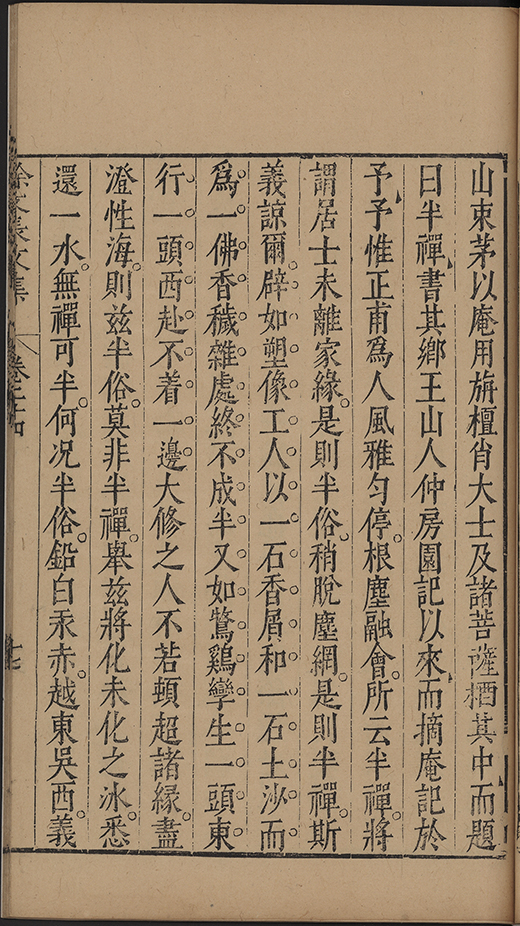 山束茅以庵用旃檀肖大士及諸菩薩栖其中而題
曰半禪書其鄉王山人仲房園記以來而摘庵記於
予予惟正甫爲人風雅勻停根塵融會所云半禪將
謂居士未離家緣是則半俗稍脫塵網是則半禪斯
義諒爾辟如塑像工人以一石香屑和一石土沙而
爲一佛香穢雜處終不成半又如鶩鷄孿生一頭東
行一頭西赴不着一邊大修之人不若頓超諸緣盡
澄性海則兹半俗莫非半禪舉兹將化未化之冰悉
還一水無禪可半何况半俗鉛白汞赤越東吳西義
徐文長文集 卷之二十四 十七